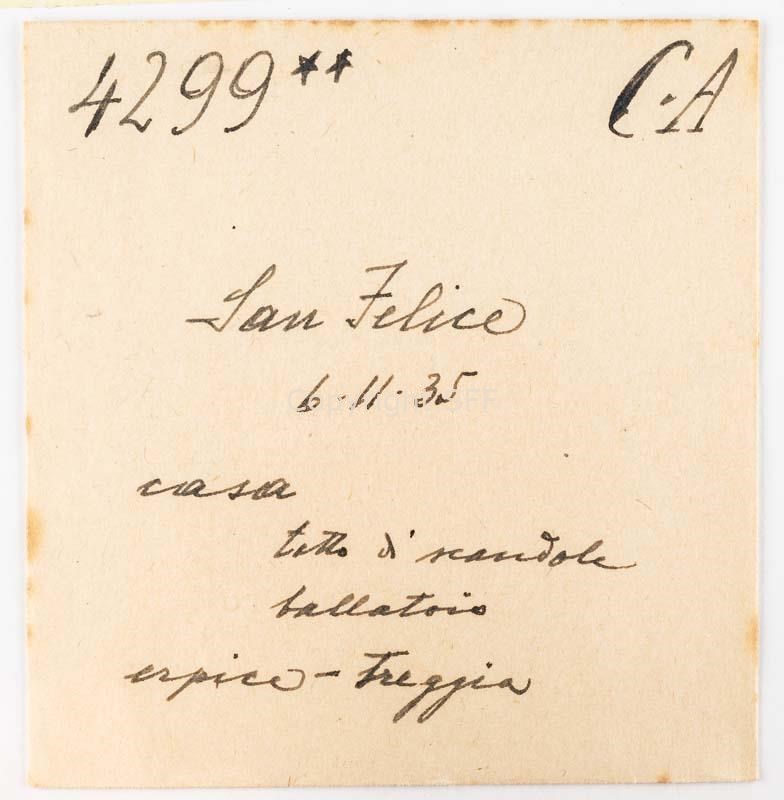 4299** C.A
San Felice
6.11.35
casa
tetto di scandole
ballatoio
erpice - treggia